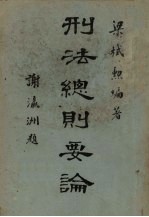 梁栻勲編著
刑法總則要論
謝瀛洲題